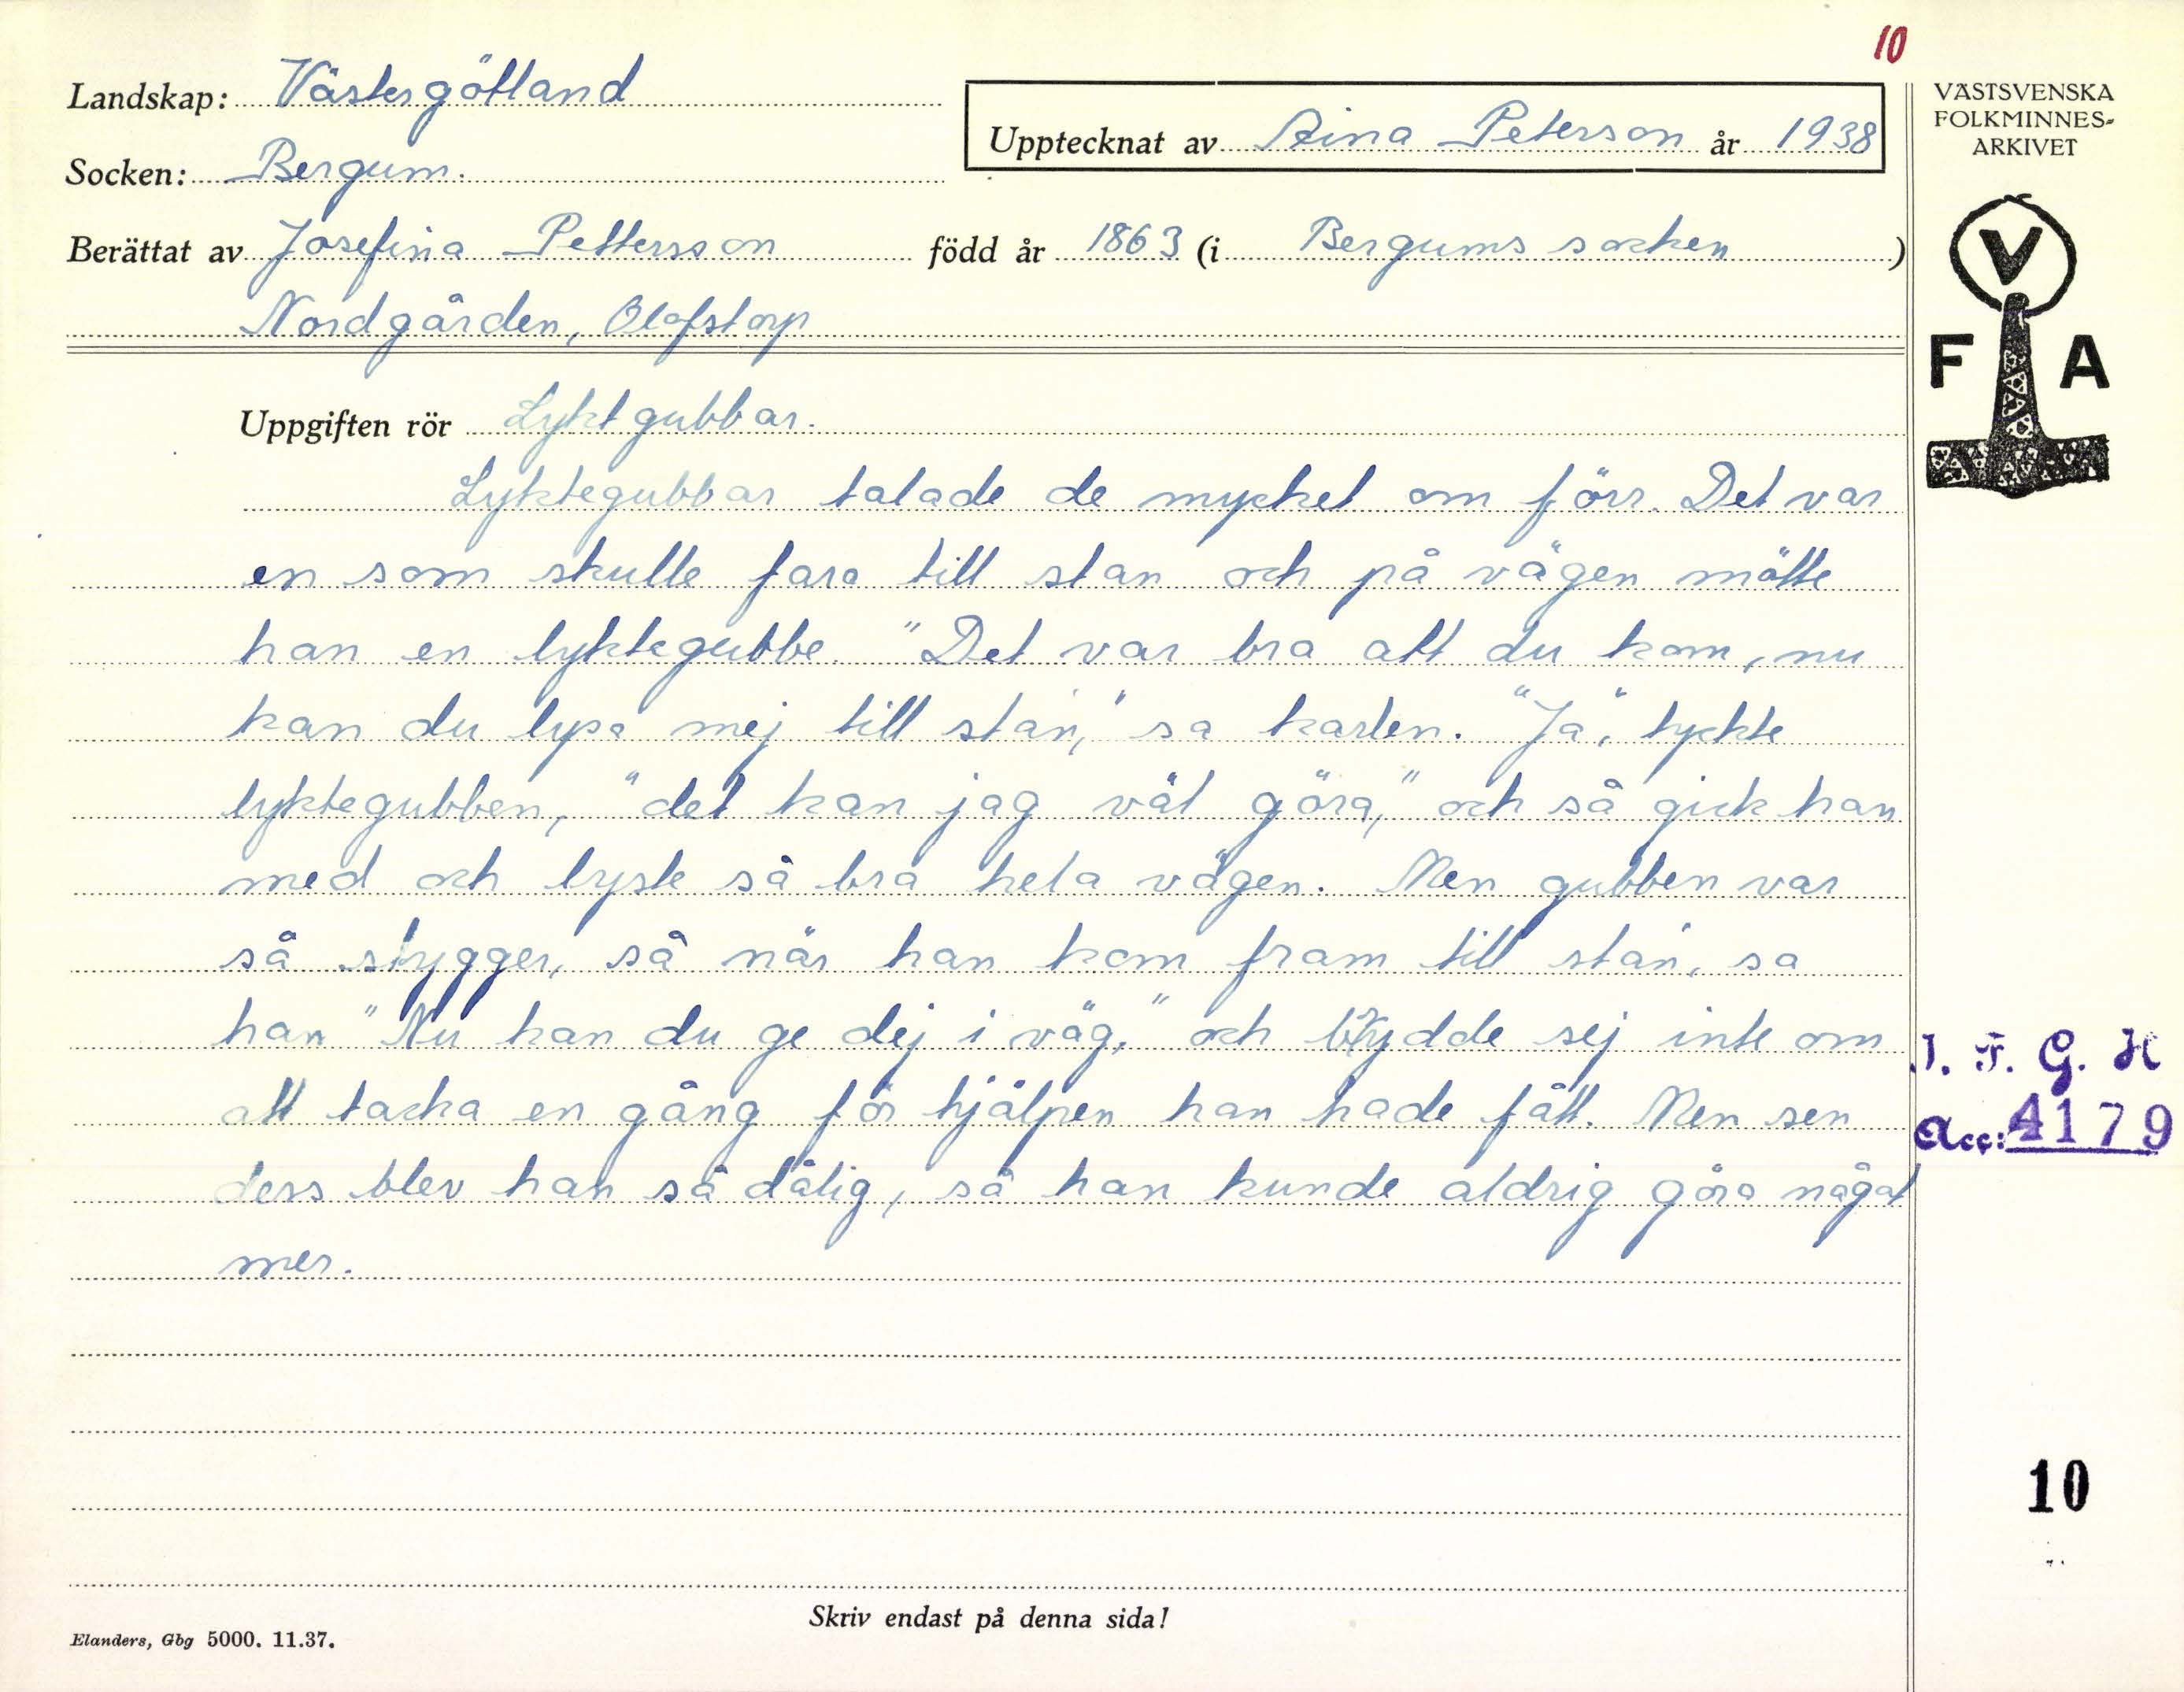 10
Landskap: Västergötland
Socken: Bergum.
Upptecknat av Aina Peterson år 1938
Berättat av Josefina Pettersson född år 1863 (i Bergums socken)
Nordgården, Olofstorp
Uppgiften rör Lyktgubbar.
Lyktegubbar talade de mycket om förr. Det var
en som skulle fara till stan och på vägen mötte
han en lyktegubbe. "Det var bra att du kom, nu
kan du lysa mej till stan," sa karlen. "Ja", tyckte
lyktegubben, "det kan jag väl göra," och så gick han
med och lyste så bra hela vägen. Men gubben var
så stygger, så när han kom fram till stan, sa
han "Nu kan du ge dej i väg," och brydde sej inte om
att tacka en gång för hjälpen han hade fått. Men sen
dess blev han så dålig, så han kunde aldrig göra något
mer.
Skriv endast på denna sida!
Elanders, Gbg 5000. 11.37.
VÄSTSVENSKA
FOLKMINNES-
ARKIVET
V
F A
I. F. G. H
Acc: 4179
10